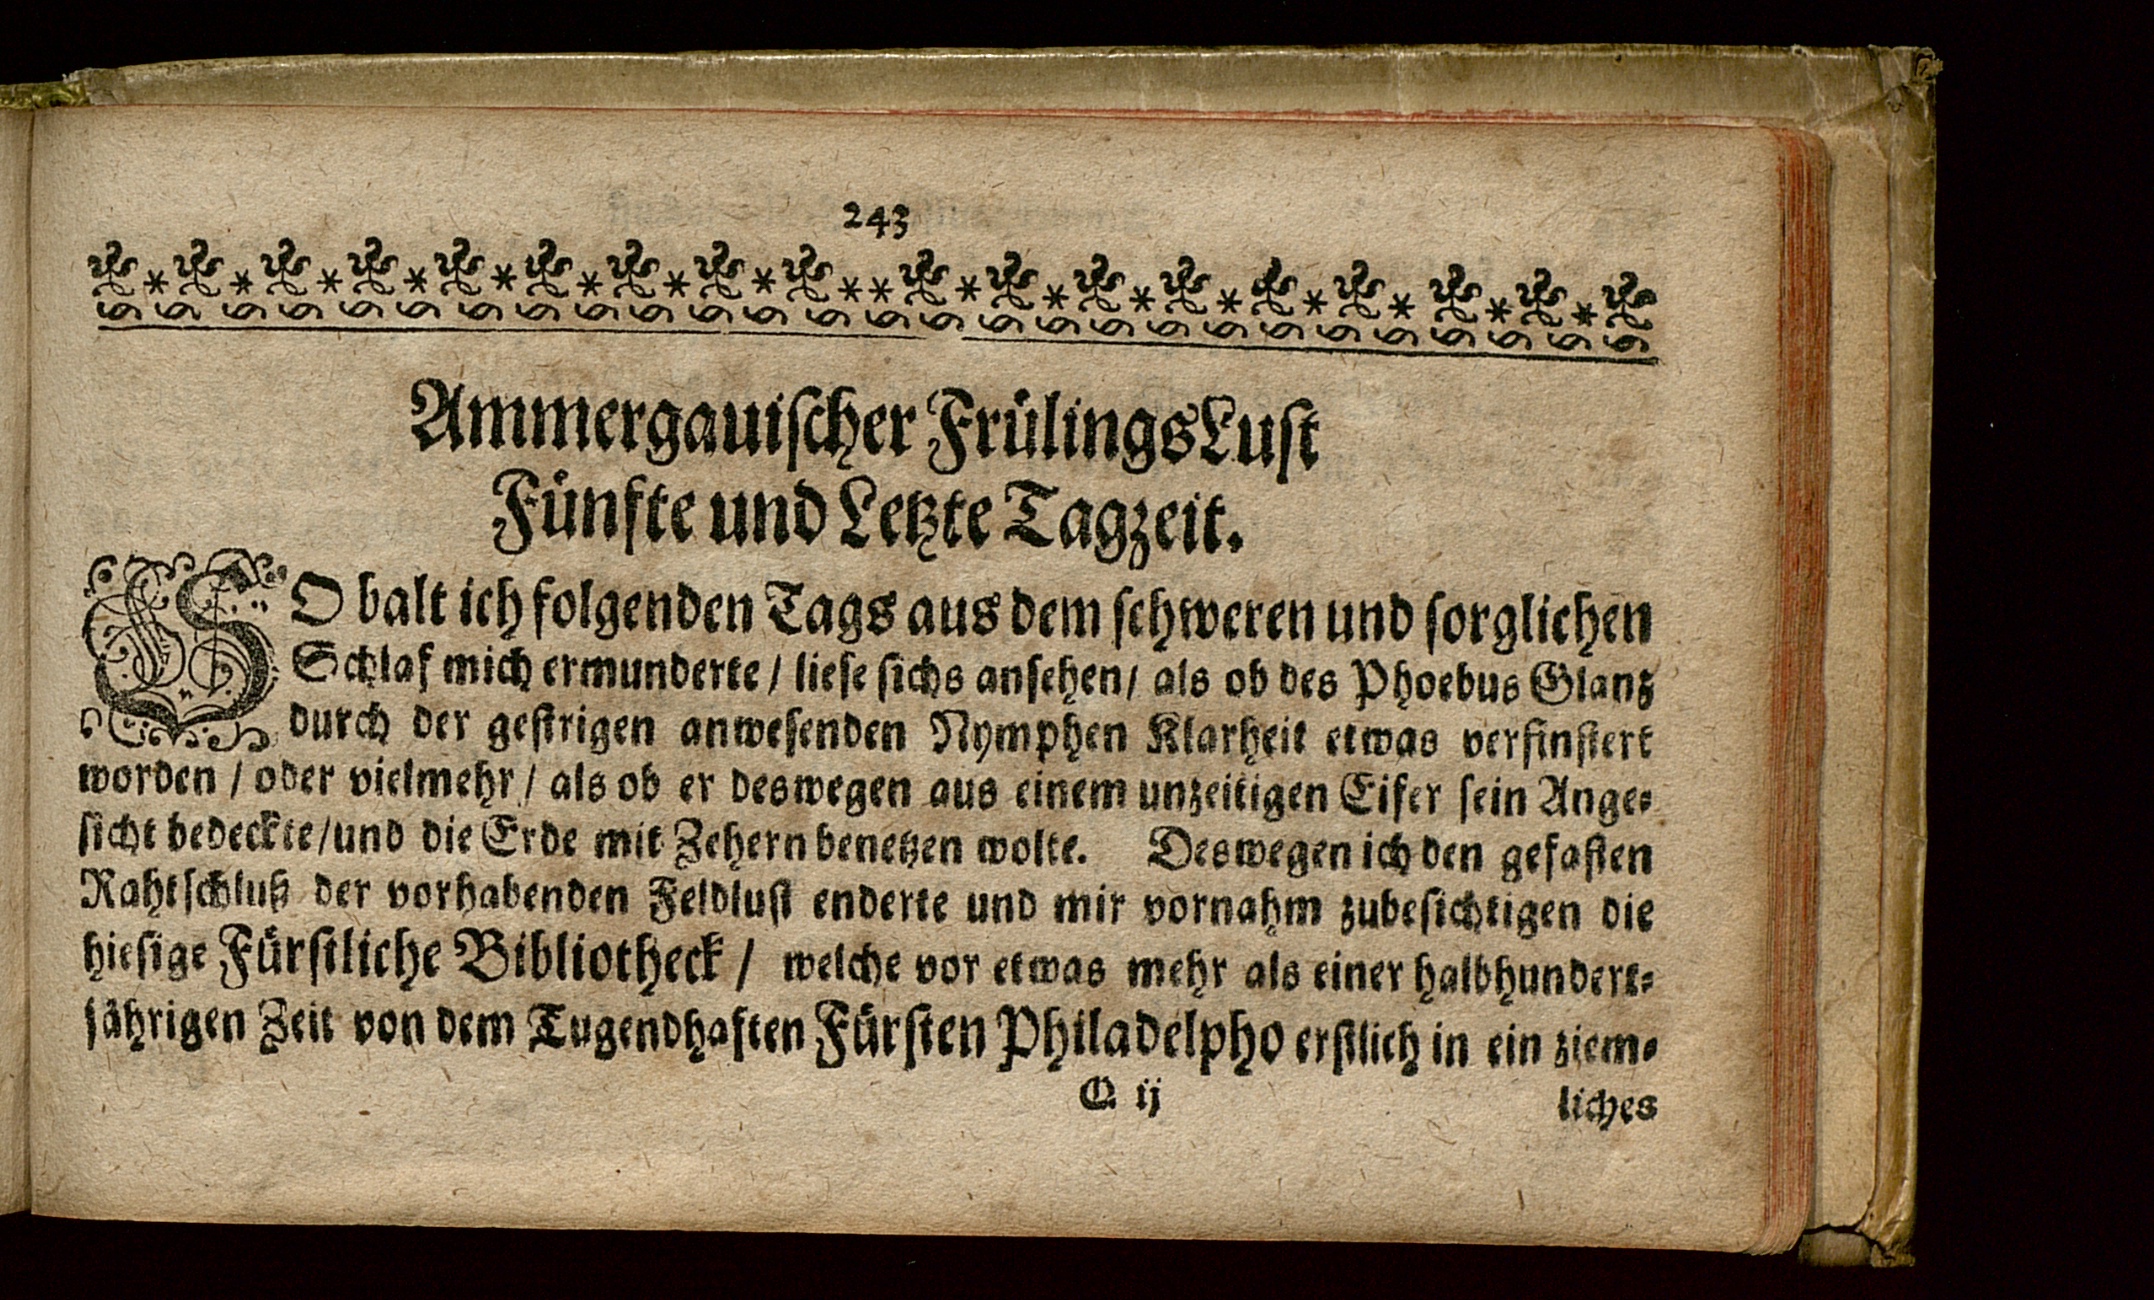 243
Ammergauiſcher FrülingsLuſt
Fünfte und Letzte Tagzeit.
SO balt ich folgenden Tags aus dem ſchweren und ſorglichen
Schlaf mich ermunderte / lieſe ſichs anſehen / als ob des Phoebus Glantz
durch der geſtrigen anweſenden Nymphen Klarheit etwas verfinſtert
worden / oder vielmehr / als ob er deswegen aus einem unzeitigen Eifer ſein Ange⸗
ſicht bedeckte / und die Erde mit Zehern benetzen wolte. Deswegen ich den gefaſten
Rahtſchluß der vorhabenden Feldluſt enderte und mir vornahm zubeſichtigen die
hieſige Fürſtliche Bibliotheck / welche vor etwas mehr als einer halbhundert⸗
jährigen Zeit von dem Tugendhaften Fürſten Philadelpho erſtlich in ein ziem⸗
Q ij liches